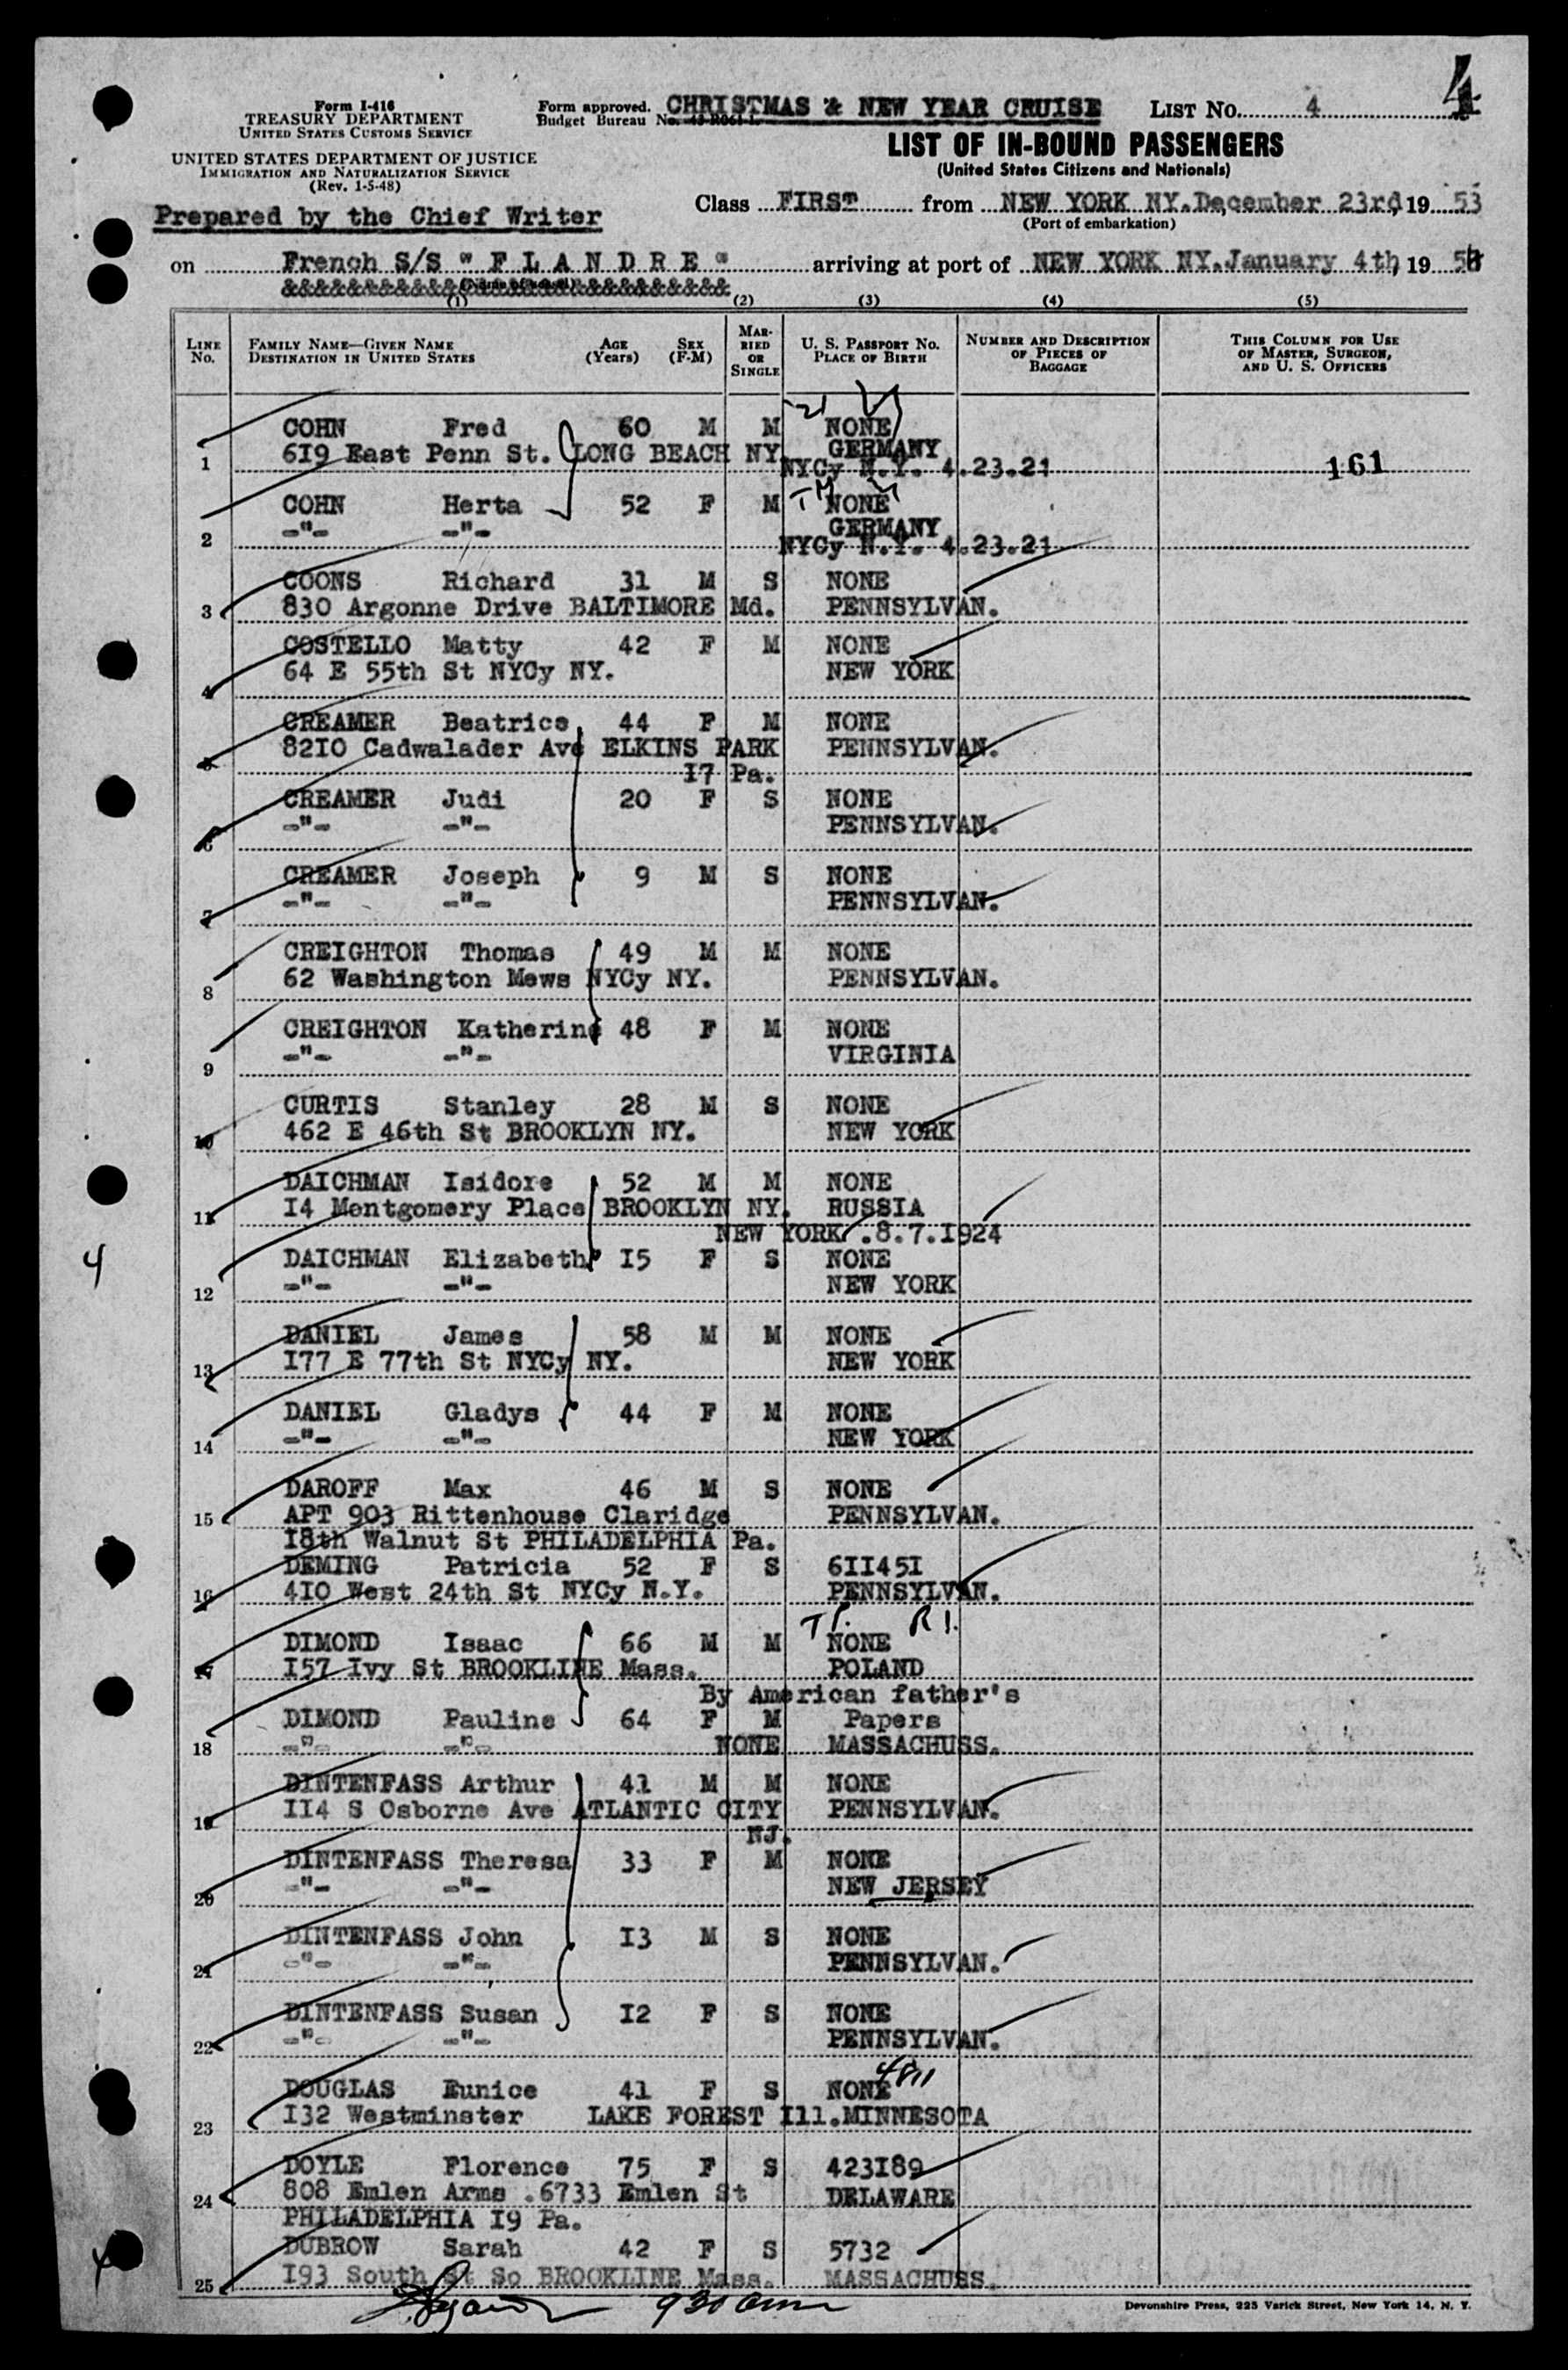 4
Form I-416
TREASURY DEPARTMENT
UNITED STATES CUSTOMS SERVICE
UNITED STATES DEPARTMENT OF JUSTICE
IMMIGRATION AND NATURALIZATION SERVICE
(Rev. 1-5-48)
Form approved.
Budget Bureau No.
CHRISTMAS & NEW YEAR CRUISE
LIST No. 4
LIST OF IN-BOUND PASSENGERS
(United States Citizens and Nationals)
Prepared by the Chief Writer
Class FIRST from NEW YORK NY. December 23rd, 19 53
(Port of embarkation)
on French S/S " F L A N D R E " arriving at port of NEW YORK NY. January 4th, 19 54
(1) (2) (3) (4) (5)
LINE No. FAMILY NAME—GIVEN NAME DESTINATION IN UNITED STATES AGE (Years) SEX (F-M) MARRIED OR SINGLE U. S. PASSPORT No. PLACE OF BIRTH NUMBER AND DESCRIPTION OF PIECES OF BAGGAGE THIS COLUMN FOR USE OF MASTER, SURGEON, AND U. S. OFFICERS
COHN Fred 60 M M NONE
1 619 East Penn St. LONG BEACH NY. GERMANY
NYCy N.Y. 4.23.21 161
COHN Herta 52 F M NONE
2 -"- -"- GERMANY
NYCy N.Y. 4.23.21
COONS Richard 31 M S NONE
3 830 Argonne Drive BALTIMORE Md. PENNSYLVAN.
COSTELLO Matty 42 F M NONE
4 64 E 55th St NYCy NY. NEW YORK
CREAMER Beatrice 44 F M NONE
5 8210 Cadwalader Ave ELKINS PARK PENNSYLVAN.
17 Pa.
CREAMER Judi 20 F S NONE
6 -"- -"- PENNSYLVAN.
CREAMER Joseph 9 M S NONE
7 -"- -"- PENNSYLVAN.
CREIGHTON Thomas 49 M M NONE
8 62 Washington Mews NYCy NY. PENNSYLVAN.
CREIGHTON Katherine 48 F M NONE
9 -"- -"- VIRGINIA
CURTIS Stanley 28 M S NONE
10 462 E 46th St BROOKLYN NY. NEW YORK
DAICHMAN Isidore 52 M M NONE
11 I4 Montgomery Place BROOKLYN NY. RUSSIA
NEW YORK .8.7.I924
4
DAICHMAN Elizabeth I5 F S NONE
12 -"- -"- NEW YORK
DANIEL James 58 M M NONE
13 I77 E 77th St NYCy NY. NEW YORK
DANIEL Gladys 44 F M NONE
14 -"- -"- NEW YORK
DAROFF Max 46 M S NONE
15 APT 903 Rittenhouse Claridge PENNSYLVAN.
I8th Walnut St PHILADELPHIA Pa.
DEMING Patricia 52 F S 6II45I
16 4I0 West 24th St NYCy N.Y. PENNSYLVAN.
DIMOND Isaac 66 M M NONE
17 I57 Ivy St BROOKLINE Mass. POLAND
By American father's
DIMOND Pauline 64 F M Papers
18 -"- -"- NONE MASSACHUSS.
DINTENFASS Arthur 41 M M NONE
19 II4 S Osborne Ave ATLANTIC CITY PENNSYLVAN.
NJ.
DINTENFASS Theresa 33 F M NONE
20 -"- -"- NEW JERSEY
DINTENFASS John I3 M S NONE
21 -"- -"- PENNSYLVAN.
DINTENFASS Susan I2 F S NONE
22 -"- -"- PENNSYLVAN.
DOUGLAS Eunice 41 F S NONE
23 I32 Westminster LAKE FOREST Ill. MINNESOTA
DOYLE Florence 75 F S 423I89
24 808 Emlen Arms .6733 Emlen St DELAWARE
PHILADELPHIA I9 Pa.
DUBROW Sarah 42 F S 5732
25 I93 South St So BROOKLINE Mass. MASSACHUSS.
930 am
Devonshire Press, 225 Varick Street, New York 14, N. Y.